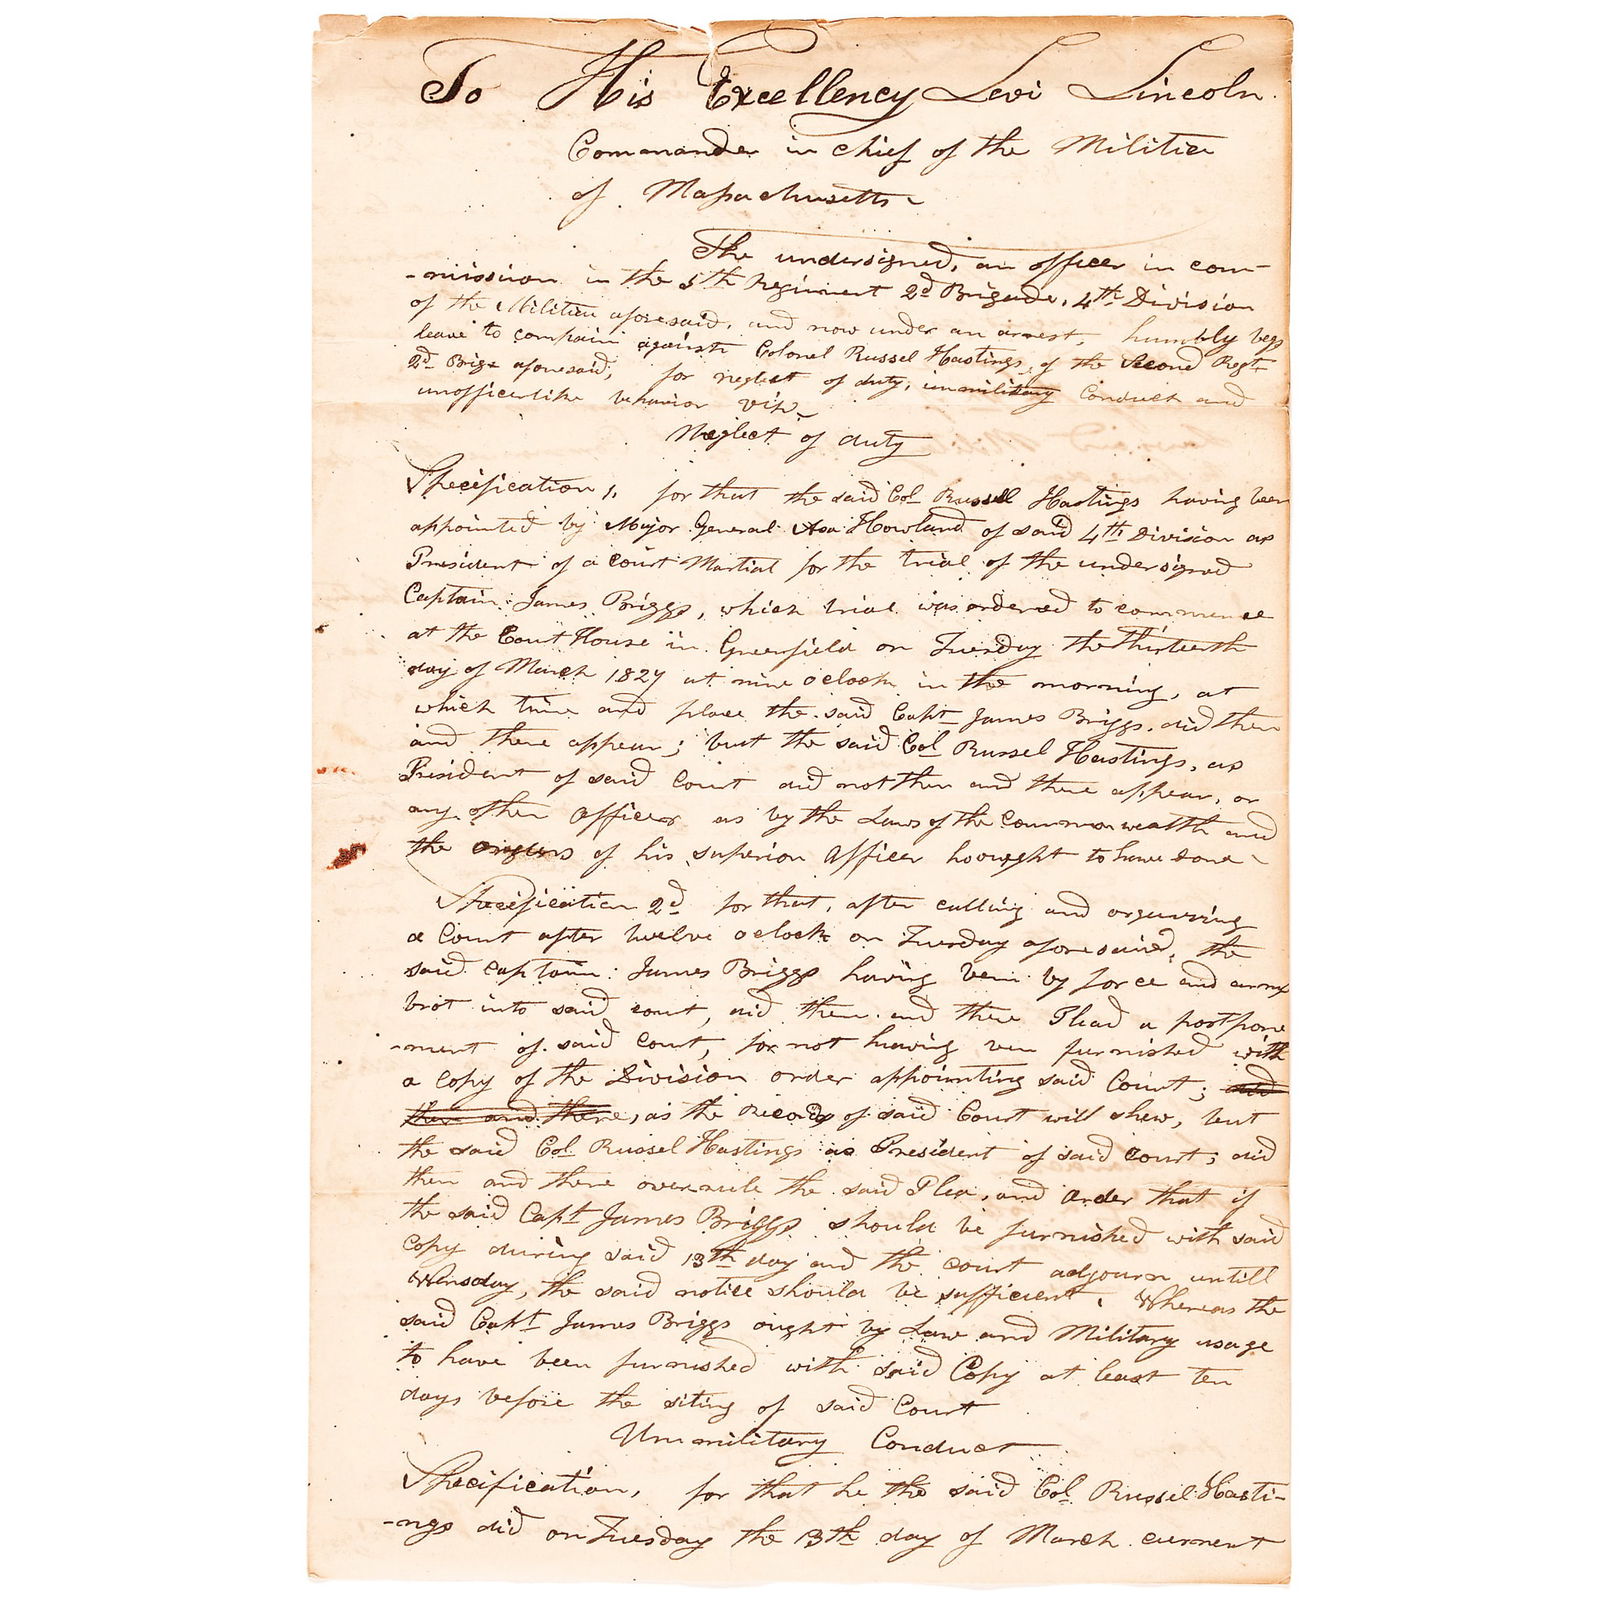 To His Excellency Levi Lincoln.
Commander in chief of the Militia
of Massachusetts
The undersigned, an officer in com-
-mission in the 5th Regiment 2d Brigade, 4th Division
of the Militia aforesaid, and now under an arrest, humbly begs
leave to complain against Colonel Russel Hastings, of the Second Regt
2d Brige aforesaid, for neglect of duty, unmilitary Conduct and
unofficerlike behavior viz.
Neglect of duty
Specification 1, for that the said Col Russell Hastings having been
appointed by Major General Asa Howland of said 4th Division as
President of a Court Martial for the trial of the undersigned
Captain James Briggs, which trial was ordered to commence
at the Court House in Greenfield on Tuesday the Thirteenth
day of March 1827 at nine oclock in the morning, at
which time and place the said Capt James Briggs did then
and there appear; but the said Col Russel Hastings, as
President of said Court did not then and there appear, or
any other officer as by the Laws of the Commonwealth and
the orders of his superior officer he ought to have done
Specification 2d for that, after calling and organizing
a Court after twelve oclock on Tuesday aforesaid, the
said Captain James Briggs having been by force and arms
brot into said court, did then and there Plead a postpone
-ment of said Court, for not having been furnished with
a copy of the Division order appointing said Court; and
then and there, as the Records of said Court will shew, but
the said Col Russel Hastings as President of said Court, did
then and there overrule the said Plea, and order that if
the said Capt James Briggs should be furnished with said
copy during said 13th day and the court adjourn untill
Wensday, the said notice should be sufficient. Whereas the
said Capt James Briggs ought by Law and Military usage
to have been furnished with said Copy at least ten
days before the siting of said Court
Unmilitary Conduct
Specification, for that he the said Col Russel Hasti-
-ngs did on Tuesday the 13th day of March current